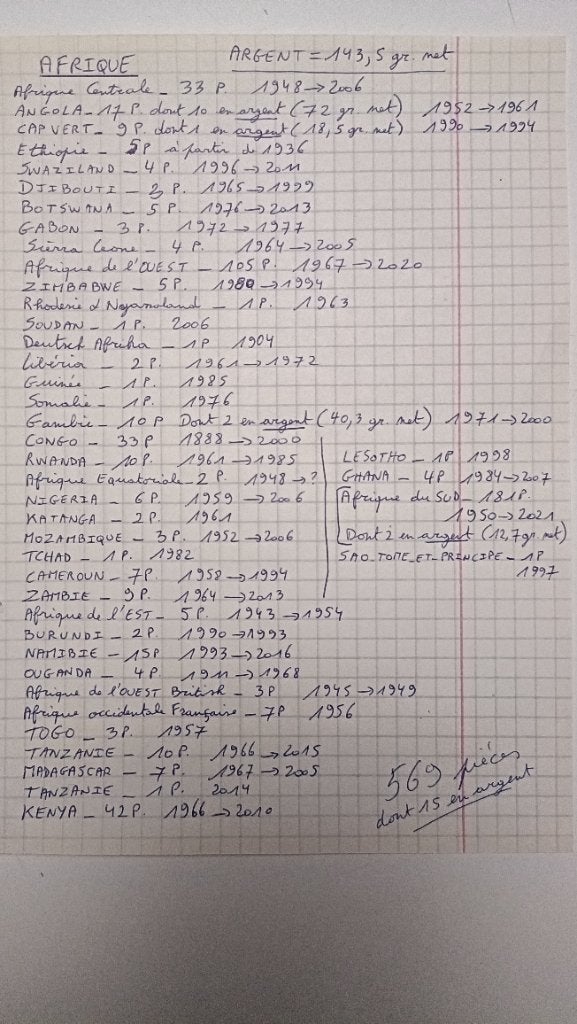 AFRIQUE
ARGENT = 143,5 gr. net
Afrique Centrale - 33 P. 1948 → 2006
ANGOLA - 17 P. dont 10 en argent (72 gr. net) 1952 → 1961
CAP VERT - 9 P. dont 1 en argent (18,5 gr. net) 1990 → 1994
Ethiopie - 5P à partir de 1936
SWAZILAND - 4 P. 1996 → 2011
DJIBOUTI - 3 P. 1965 → 1999
BOTSWANA - 5 P. 1976 → 2013
GABON - 3 P. 1972 → 1977
Sierra Leone - 4 P. 1964 → 2005
Afrique de l'OUEST - 105 P. 1967 → 2020
ZIMBABWE - 5 P. 1980 → 1994
Rhodesie & Nyassaland - 1 P. 1963
SOUDAN - 1 P. 2006
Deutsch Afrika - 1P 1904
Libéria - 2 P. 1961 → 1972
Guinée - 1 P. 1985
Somalie - 1 P. 1976
Gambie - 10 P Dont 2 en argent (40,3 gr. net) 1971 → 2000
CONGO - 33P 1888 → 2000
RWANDA - 10 P. 1961 → 1985
Afrique Equatoriale - 2 P. 1948 → ?
NIGERIA - 6 P. 1959 → 2006
KATANGA - 2 P. 1961
MOZAMBIQUE - 3 P. 1952 → 2006
TCHAD - 1 P. 1982
CAMEROUN - 7 P. 1958 → 1994
ZAMBIE - 9 P. 1964 → 2013
Afrique de l'EST - 5 P. 1943 → 1954
BURUNDI - 2 P. 1990 → 1993
NAMIBIE - 15P 1993 → 2016
OUGANDA - 4 P. 1911 → 1968
Afrique de l'OUEST British - 3P 1945 → 1949
Afrique occidentale Française - 7P 1956
TOGO - 3 P. 1957
TANZANIE - 10 P. 1966 → 2015
MADAGASCAR - 7 P. 1967 → 2005
TANZANIE - 1 P. 2014
KENYA - 42 P. 1966 → 2010
LESOTHO - 1P 1998
GHANA - 4P 1984 → 2007
Afrique du SUD - 181P.
1950 → 2021
Dont 2 en argent (12,7 gr. net)
SAO_TOME_ET_PRINCIPE - 1P
1997
569 pièces
dont 15 en argent